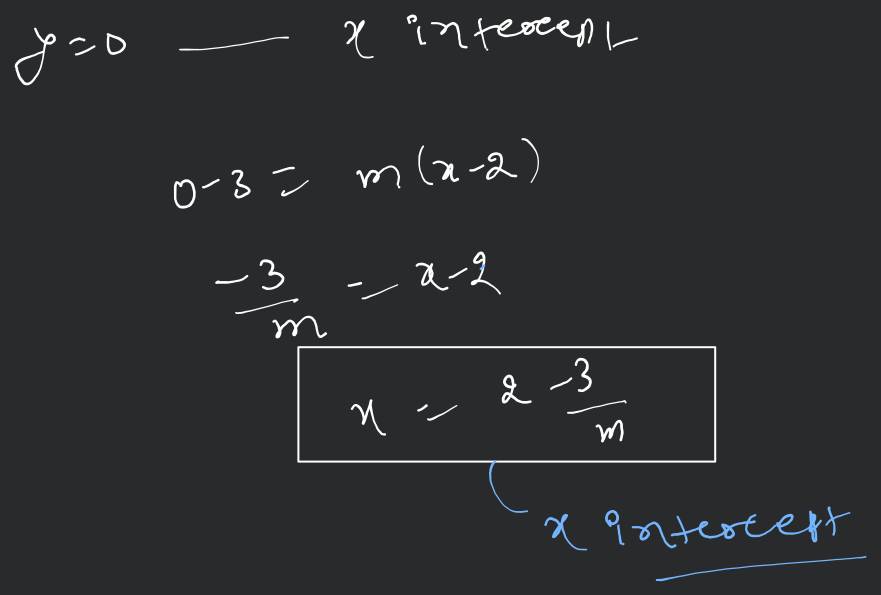 y=0 — x intercept
0-3 = m(x-2)
-3/m = x-2
x = 2 -3/m
x intercept